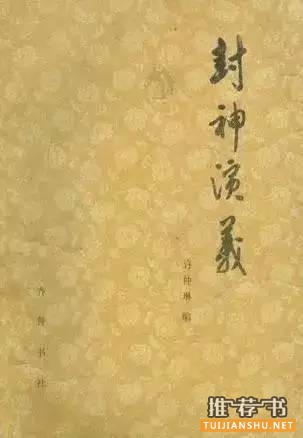 封神演义
许仲琳 编
齐鲁书社
推荐书
TUIJIANSHU.NET